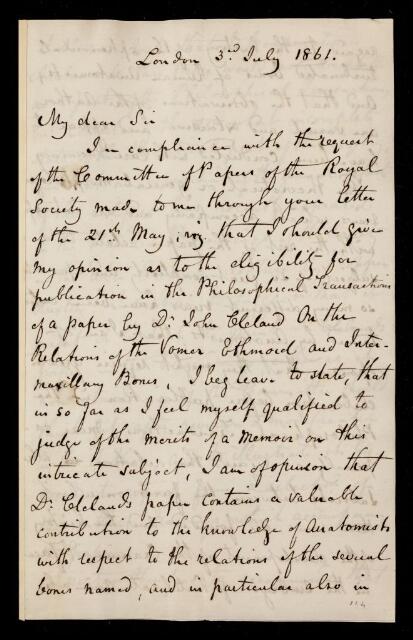 London 3rd July 1861.
My dear Sir
In compliance with the request
of the Committee of Papers of the Royal
Society made to me through your letter
of the 21st May; viz that I should give
my opinion as to the eligibility for
publication in the Philosophical Transactions
of a paper by Dr John Cleland On the
Relations of the Vomer Ethmoid and Inter-
maxillary Bones, I beg leave to state, that
in so far as I feel myself qualified to
judge of the merits of a memoir on this
intricate subject, I am of opinion that
Dr Clelands paper contains a valuable
contribution to the knowledge of Anatomists
with respect to the relations of the several
bones named, and in particular also in